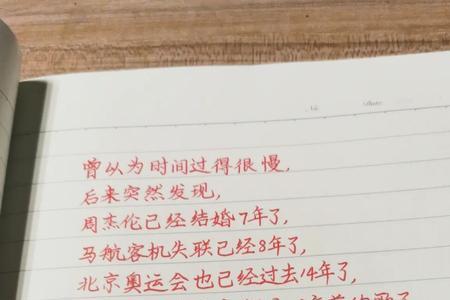 曾从为时间过得很慢,
后来突然发现,
周杰伦已经结婚7年了,
马航客机失联已经8年了,
北京奥运会也已经过去14年了,